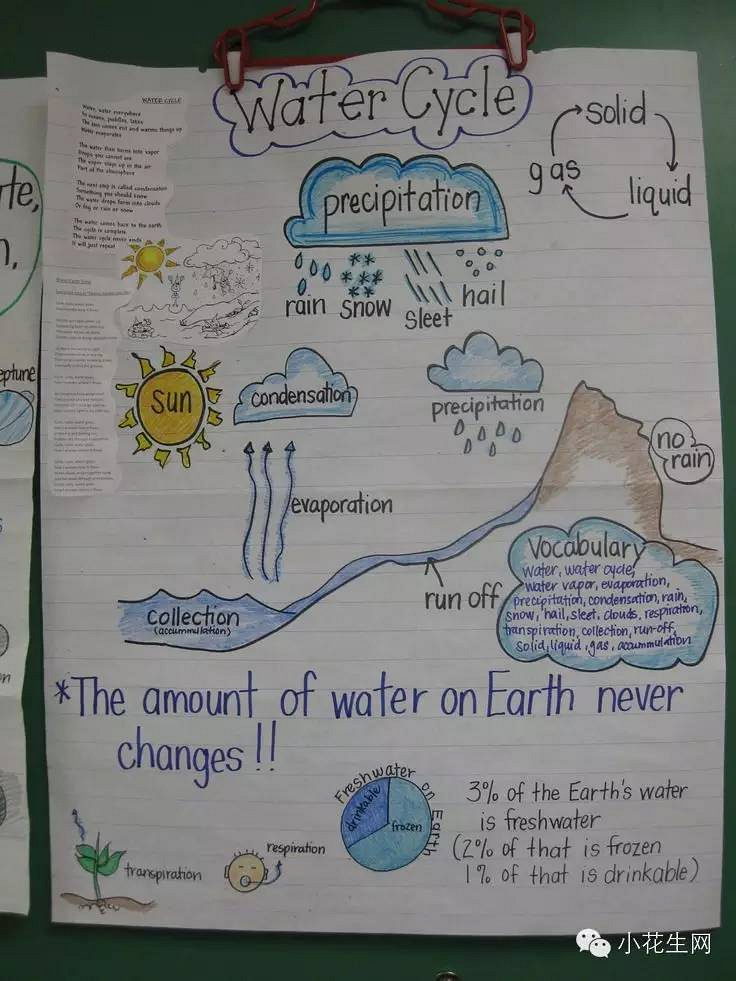 Water Cycle
WATER CYCLE
Water, water everywhere
In oceans, puddles, lakes
The sun comes out and warms things up
Water evaporates
The water then turns into vapor
Drops you cannot see
The vapor stays up in the air
Part of the atmosphere
The next step is called condensation
Something you should know
The water drops form into clouds
Or fog or rain or snow
The water comes back to the earth
The cycle is complete
The water cycle never ends
It will just repeat
solid
gas
liquid
precipitation
rain
snow
sleet
hail
sun
condensation
precipitation
no
rain
evaporation
run off
collection
(accummulation)
Vocabulary
water, water cycle,
water vapor, evaporation,
precipitation, condensation, rain,
snow, hail, sleet, clouds, respiration,
transpiration, collection, run-off,
solid, liquid, gas, accummulation
*The amount of water on Earth never
changes!!
transpiration
respiration
Freshwater on Earth
drinkable
frozen
3% of the Earth's water
is freshwater
(2% of that is frozen
1% of that is drinkable)
eptune
小花生网